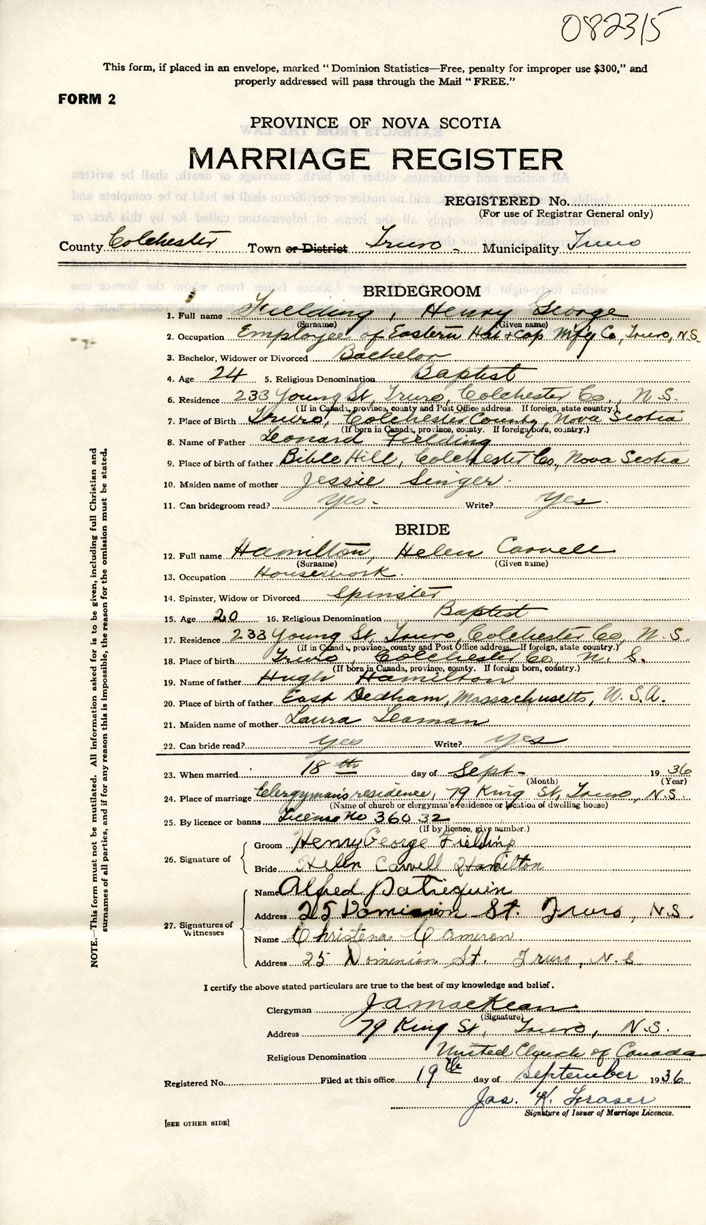 082315
This form, if placed in an envelope, marked "Dominion Statistics—Free, penalty for improper use $300," and
properly addressed will pass through the Mail "FREE."
FORM 2
PROVINCE OF NOVA SCOTIA
MARRIAGE REGISTER
REGISTERED No.
(For use of Registrar General only)
County Colchester Town or District Truro - Municipality Truro
BRIDEGROOM
1. Full name Fielding, Henry George
(Surname) (Given name)
2. Occupation Employee of Eastern Hat & Cap Mfg Co, Truro, N.S.
3. Bachelor, Widower or Divorced Bachelor
4. Age 24 5. Religious Denomination Baptist
6. Residence 233 Young St, Truro, Colchester Co, N.S.
(If in Canada, province, county and Post Office address. If foreign, state country.)
7. Place of Birth Truro, Colchester County, Nova Scotia
(If born in Canada, province, county. If foreign born, country.)
8. Name of Father Leonard Fielding
9. Place of birth of father Bible Hill, Colchester Co, Nova Scotia
10. Maiden name of mother Jessie Singer
11. Can bridegroom read? Yes. Write? Yes.
BRIDE
12. Full name Hamilton, Helen Carvell
(Surname) (Given name)
13. Occupation Housework.
14. Spinster, Widow or Divorced Spinster
15. Age 20 16. Religious Denomination Baptist
17. Residence 233 Young St, Truro, Colchester Co, N.S.
(If in Canada, province, county and Post Office address. If foreign, state country.)
18. Place of birth Truro Colchester Co, N.S.
(If born in Canada, province, county. If foreign born, country.)
19. Name of father Hugh Hamilton
20. Place of birth of father East Dedham, Massachusetts, U.S.A.
21. Maiden name of mother Laura Leaman
22. Can bride read? Yes Write? Yes
23. When married 18th day of Sept- 1936
(Month) (Year)
24. Place of marriage Clergyman's residence, 79 King St, Truro, N.S.
(Name of church or clergyman's residence or location of dwelling house)
25. By licence or banns License No 36032
(If by licence, give number.)
26. Signature of Groom Henry George Fielding
Bride Helen Carvell Hamilton
27. Signatures of Witnesses
Name Alfred Patriquin
Address 25 Dominion St. Truro, N.S.
Name Christena Cameron
Address 25 Dominion St. Truro, N.S
I certify the above stated particulars are to the best of my knowledge and belief.
Clergyman J A MacKean
(Signature)
Address 79 King St, Truro, N.S.
Religious Denomination United Church of Canada
Registered No. Filed at this office 19th day of September 1936
Jas. K. Fraser
Signature of Issuer of Marriage Licences.
[SEE OTHER SIDE]
NOTE.—This form must not be mutilated. All information asked for is to be given, including full Christian and
surnames of all parties, and if for any reason this is impossible, the reason for the omission must be stated.